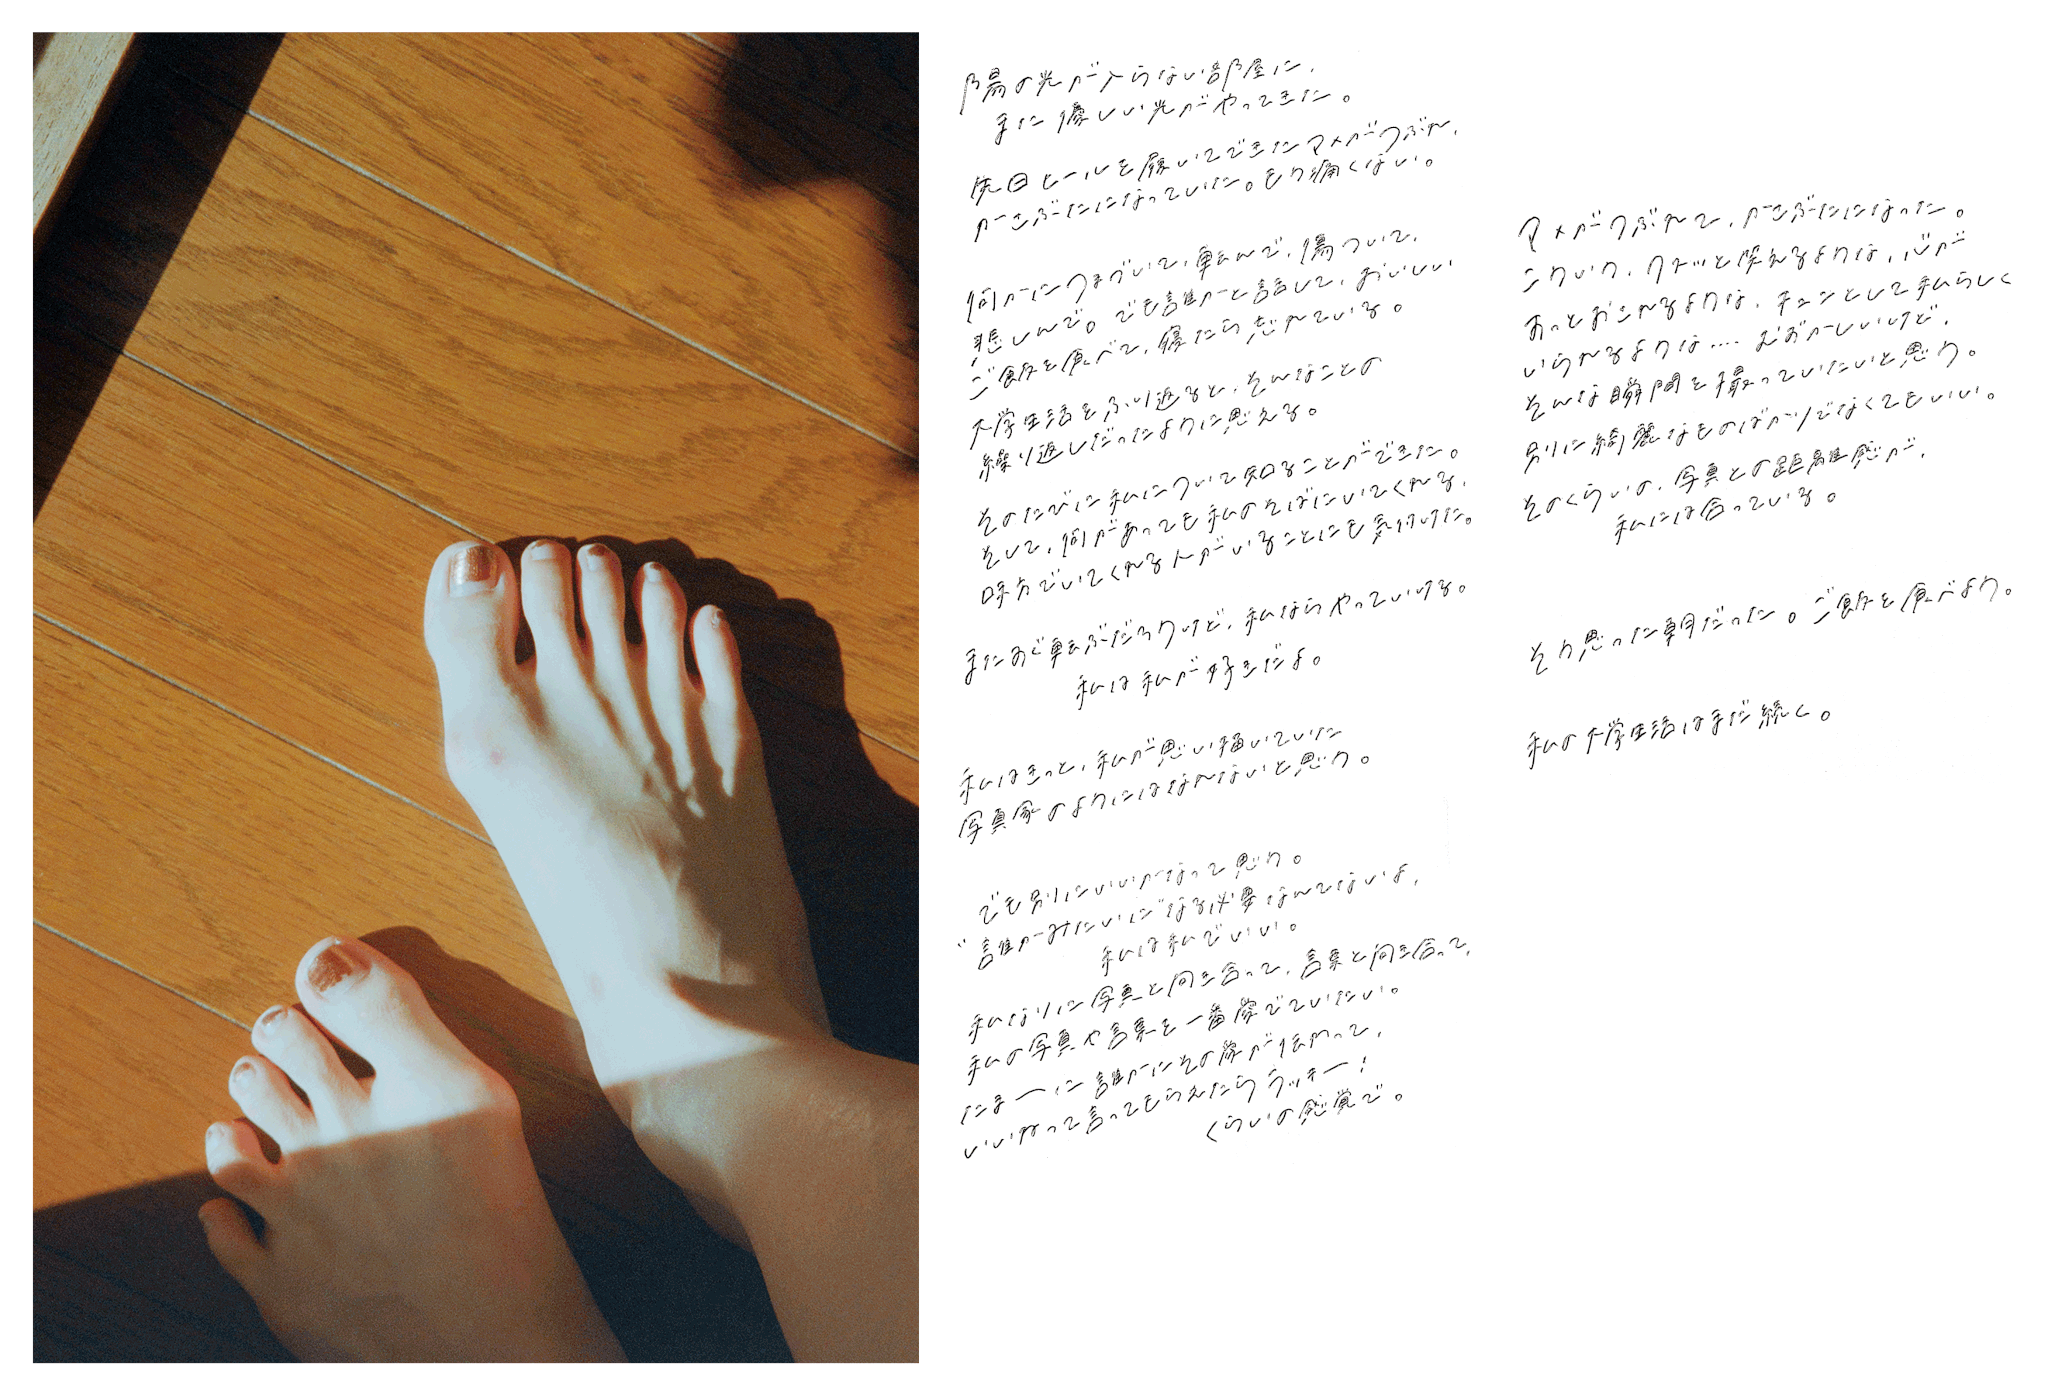 陽の光が入らない部屋に、
また優しい光がやってきた。
先日ヒールを履いてできたマメがつぶれ、
かさぶたになっていた。もう痛くない。
何かにつまづいて、転んで、傷ついて、
悲しんで。でも誰かと話して、おいしい
ご飯を食べて、寝たら忘れている。
大学生活をふり返ると、そんなことの
繰り返しだったように思える。
そのたびに私について知ることができた。
そして、何があっても私のそばにいてくれる、
味方でいてくれる人がいることにも気付けた。
またすぐ転ぶだろうけど、私ならやっていける。
私は私が好きだよ。
私はきっと、私が思い描いていた
写真家のようにはなれないと思う。
でも別にいいかなって思う。
"誰かみたいに"なる必要なんてないよ、
私は私でいい。
私なりに写真と向き合って、言葉と向き合って、
私の写真や言葉を一番好きでいたい。
たまーに誰かにその好きが伝わって、
いいねって言ってもらえたらラッキー!
くらいの感覚で。
マメがつぶれて、かさぶたになった。
こういう、クスッと笑えるような、心が
あっとおどれるような、キュンとして私らしく
いられるような.... むずかしいけど、
そんな瞬間を撮っていたいと思う。
別に綺麗なものばかりでなくてもいい。
そのくらいの、写真との距離感が、
私には合っている。
そう思った朝だった。ご飯を食べよう。
私の大学生活はまだ続く。